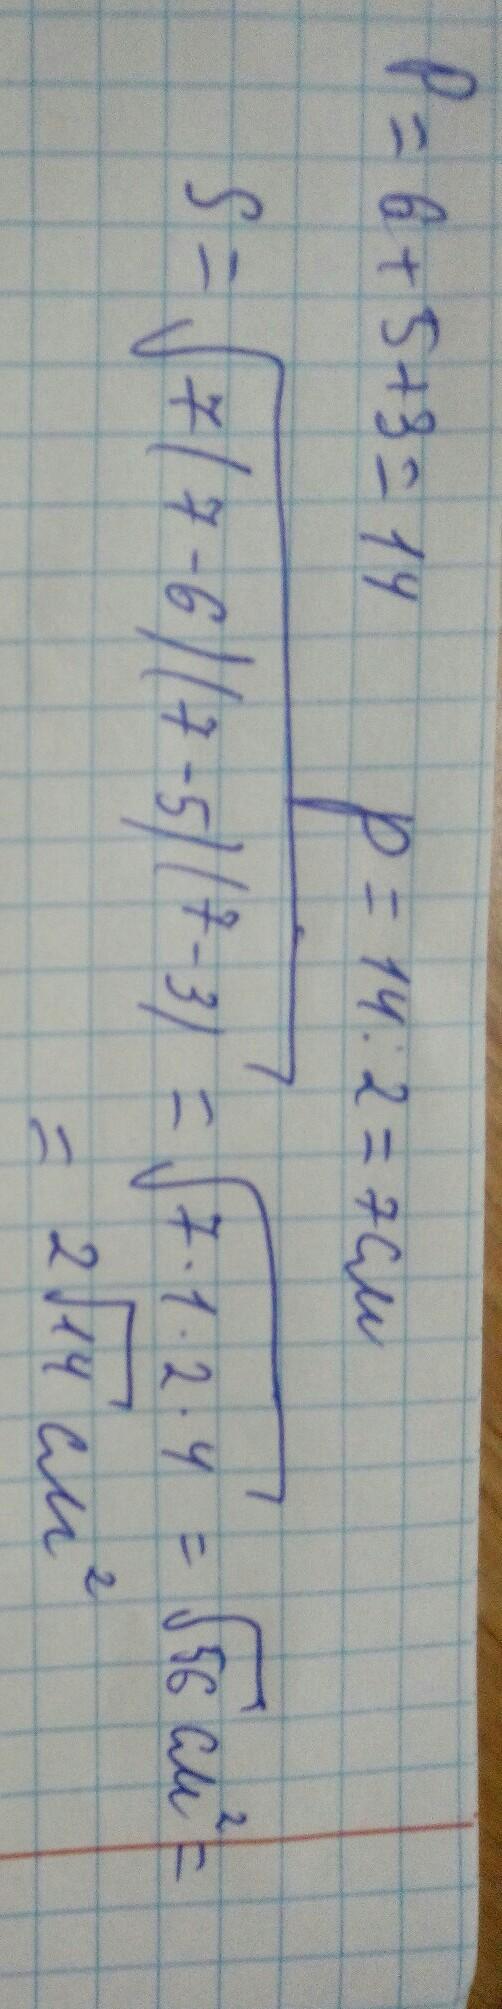 P = 6 + 5 + 3 = 14 p = 14 : 2 = 7 см
S = √7(7 - 6)(7 - 5)(7 - 3) = √7 · 1 · 2 · 4 = √56 см² =
= 2√14 см²